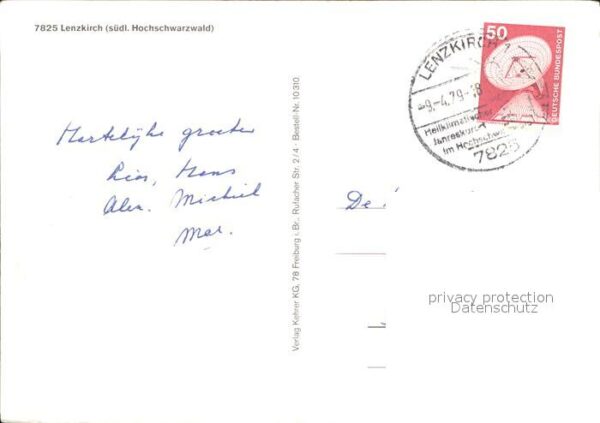 7825 Lenzkirch (südl. Hochschwarzwald)
Hartelijke groeten
Lies, Hans
Alex. Michiel
Mar.
Verlag Kehrer KG, 78 Freiburg i. Br., Rufacher Str. 2/4 · Bestell-Nr. 10 310
LENZKIRCH 1
-9.-4.79-18
Heilklimatischer
Jahreskurort
im Hochschw
7825
50
DEUTSCHE BUNDESPOST
De
privacy protection
Datenschutz